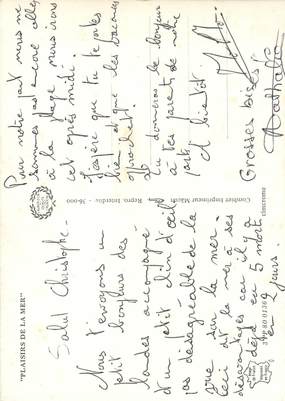 "PLAISIRS DE LA MER"
Salut Christophe -
Nous t'envoyons un
petit bonjour des
landes accompagné
d'un petit clin d'oeil
pas désagréable de la
vue sur la mer.
Ceci dit la mer a ses
désavantages car il y a
déjà eu 5 morts
en 2 jours.
Combier Imprimeur Mâcon
Repro. Interdite - 36-000
cimcrome
Pour notre part nous ne
sommes pas encore allés
à la plage nous irons
cet après midi.
J'espère que tu te portes
bien et que les vacances
approchent.
Tu donneras le bonjour
à tes parents de notre
part
et bientôt
Grosses bises
Nathalie